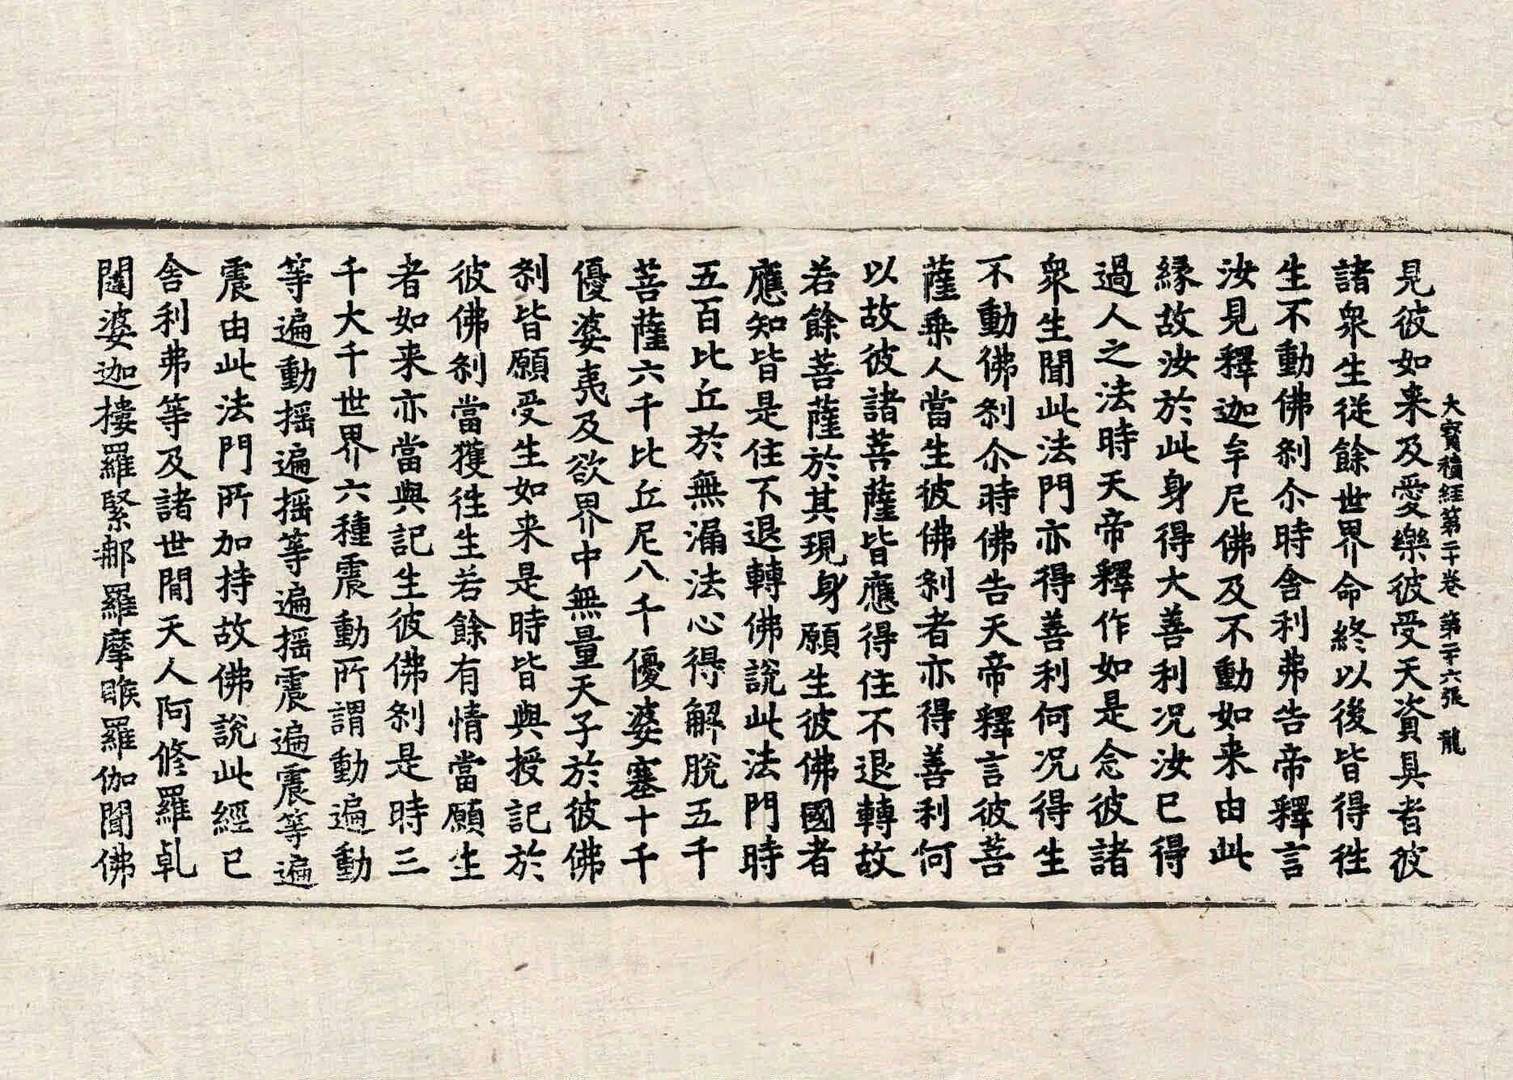 大寳積経第二十卷 第二十六張 龍
見彼如来及愛樂彼受天資具者彼
諸衆生從餘世界命終以後皆得徃
生不動佛刹尒時舍利弗告帝釋言
汝見釋迦牟尼佛及不動如来由此
緣故汝於此身得大善利况汝已得
過人之法時天帝釋作如是念彼諸
衆生聞此法門亦得善利何况得生
不動佛刹尒時佛告天帝釋言彼菩
薩乗人當生彼佛刹者亦得善利何
以故彼諸菩薩皆應得住不退轉故
若餘菩薩於其現身願生彼佛國者
應知皆是住不退轉佛說此法門時
五百比丘於無漏法心得解脫五千
菩薩六千比丘尼八千優婆塞十千
優婆夷及欲界中無量天子於彼佛
刹皆願受生如来是時皆與授記於
彼佛刹當獲徃生若餘有情當願生
者如来亦當與記生彼佛刹是時三
千大千世界六種震動所謂動遍動
等遍動揺遍揺等遍揺震遍震等遍
震由此法門所加持故佛說此經已
舍利弗等及諸世間天人阿修羅乹
闥婆迦樓羅緊那羅摩睺羅伽聞佛